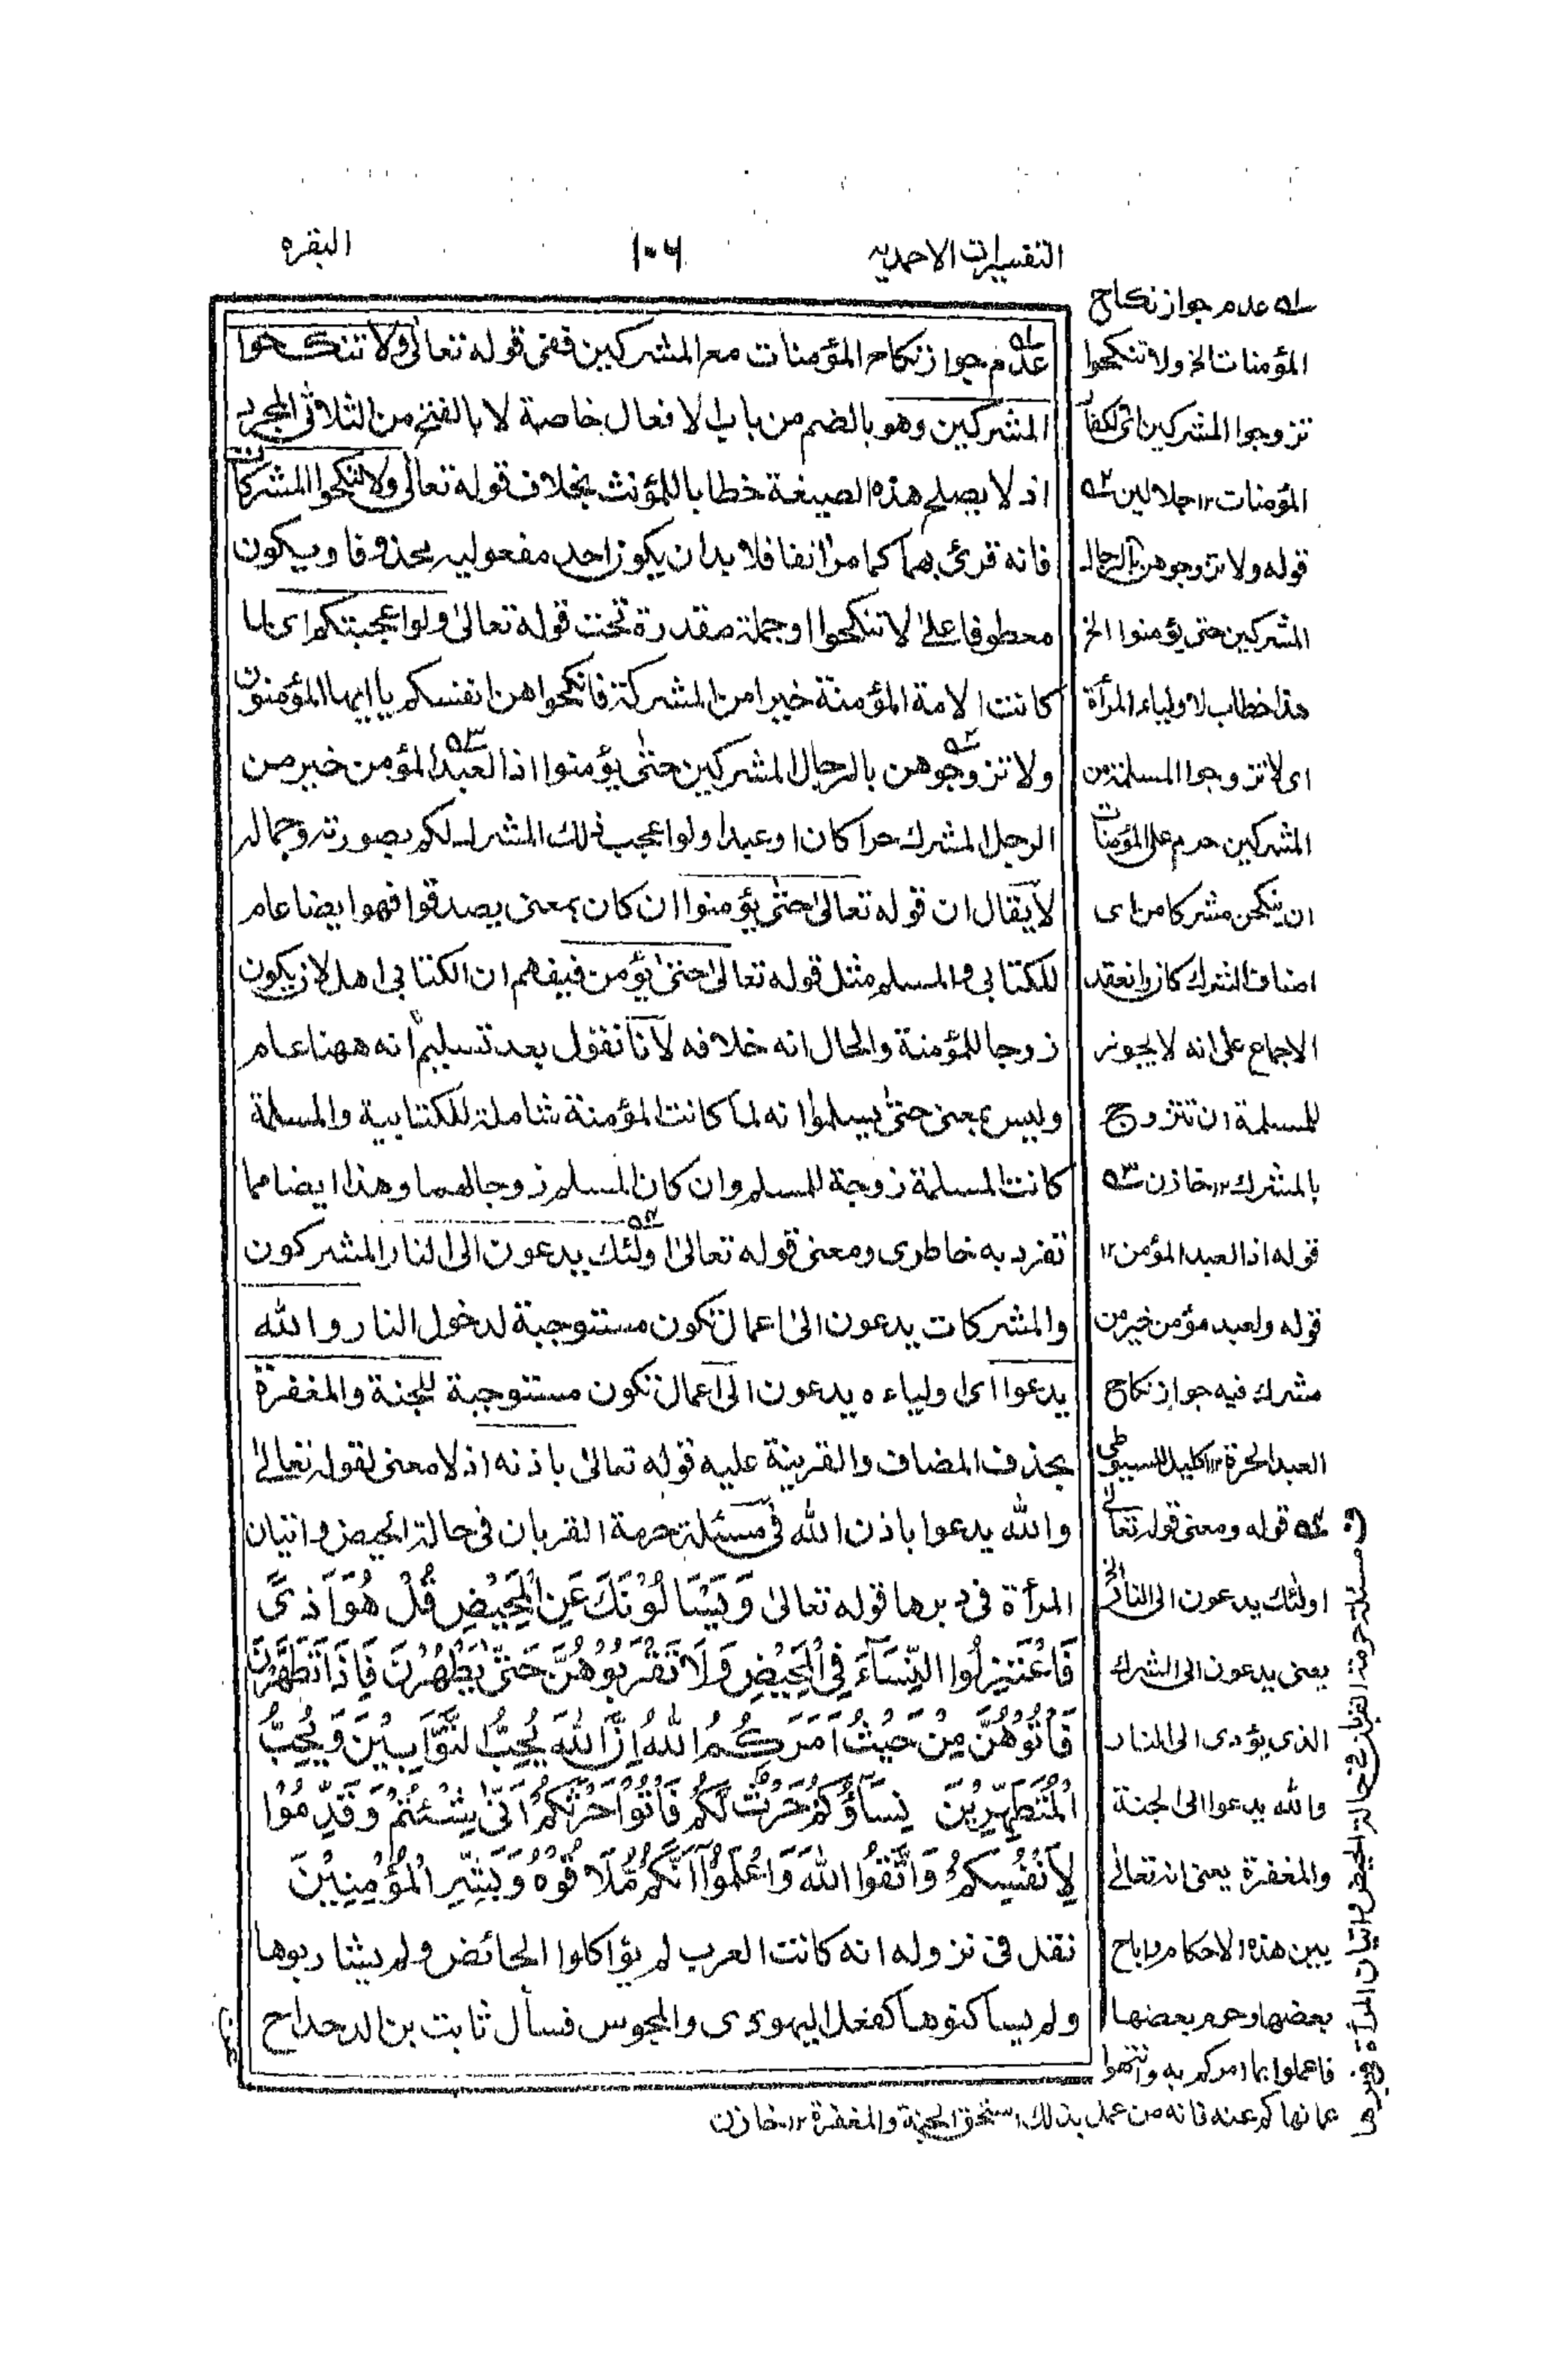 التفسيرات الاحمديه
١٠٦
البقره
عدم جواز نكاح المؤمنات مع المشركين ففى قوله تعالى ولا تنكحوا
المشركين وهو بالضم من باب الافعال خاصة لا بالفتح من الثلاثى المجرد
اذ لا يصلح هذه الصيغة خطابا للمؤنث بخلاف قوله تعالى ولا تنكحوا المشركات
فانه قرئ بهما كما مر انفا فلا بد ان يكون احد مفعوليه محذوفا ويكون
معطوفا على لا تنكحوا او جملة مقدرة تحت قوله تعالى ولو اعجبتكم اى لما
كانت الامة المؤمنة خيرا من المشركة فانكحوا هن انفسكم يا ايها المؤمنون
ولا تزوجوهن بالرجال المشركين حتى يؤمنوا اذ العبد المؤمن خير من
الرجل المشرك حرا كان او عبدا ولو اعجب ذلك المشرك لكم بصورته وجماله
لا يقال ان قوله تعالى حتى يؤمنوا ان كان بمعنى يصدقوا فهو ايضا عام
للكتابى والمسلم مثل قوله تعالى حتى يؤمن فيفهم ان الكتابى اهل لان يكون
زوجا للمؤمنة والحال انه خلافه لانا نقول بعد تسليم انه ههنا عام
وليس بمعنى حتى يسلموا انه لما كانت المؤمنة شاملة للكتابية والمسلمة
كانت المسلمة زوجة للمسلم وان كان المسلم زوجا لهما وهذا ايضا مما
تفرد به خاطرى ومعنى قوله تعالى اولئك يدعون الى النار المشركون
والمشركات يدعون الى اعمال تكون مستوجبة لدخول النار والله
يدعوا اى اولياءه يدعون الى اعمال تكون مستوجبة للجنة والمغفرة
بحذف المضاف والقرينة عليه قوله تعالى باذنه اذ لا معنى لقوله تعالى
والله يدعوا باذن الله فى مسئلة حرمة القربان فى حالة الحيض واتيان
المرأة فى دبرها قوله تعالى وَيَسْأَلُوْنَكَ عَنِ الْمَحِيْضِ قُلْ هُوَ اَذًى
فَاعْتَزِلُوا النِّسَآءَ فِى الْمَحِيْضِ وَلَا تَقْرَبُوْهُنَّ حَتّٰى يَطْهُرْنَ فَاِذَا تَطَهَّرْنَ
فَأْتُوْهُنَّ مِنْ حَيْثُ اَمَرَكُمُ اللّٰهُ اِنَّ اللّٰهَ يُحِبُّ التَّوَّابِيْنَ وَيُحِبُّ
الْمُتَطَهِّرِيْنَ نِسَآؤُكُمْ حَرْثٌ لَّكُمْ فَأْتُوْا حَرْثَكُمْ اَنّٰى شِئْتُمْ وَقَدِّمُوْا
لِاَنْفُسِكُمْ وَاتَّقُوا اللّٰهَ وَاعْلَمُوْآ اَنَّكُمْ مُّلٰقُوْهُ وَبَشِّرِ الْمُؤْمِنِيْنَ
نقل فى نزوله انه كانت العرب لم يؤاكلوا الحائض ولم يشاربوها
ولم يساكنوها كفعل اليهودى والمجوس فسأل ثابت بن الدحداح
له عدم جواز نكاح
المؤمنات الخ ولا تنكحوا
تزوجوا المشركين اى الكفار
المؤمنات ١٢ جلالين ٥٢
قوله ولا تزوجوهن بالرجال
المشركين حتى يؤمنوا الخ
هذا خطاب لاولياء المرأة
اى لا تزوجوا المسلمة من
المشركين حرم على المؤمنات
ان ينكحن مشركا من اى
اصناف الشرك كان وانعقد
الاجماع على انه لا يجوز
للمسلمة ان تتزوج
بالمشرك ١٢ خازن ٥٣
قوله اذ العبد المؤمن ١٢
قوله ولعبد مؤمن خير من
مشرك فيه جواز نكاح
العبد الحرة ١٢ اكليل للسيوطى
٥٤ قوله ومعنى قوله تعالى
اولئك يدعون الى النار الخ
يعنى يدعون الى الشرك
الذى يؤدى الى النار
والله يدعوا الى الجنة
والمغفرة يعنى انه تعالى
يبين هذه الاحكام واباح
بعضها وحرم بعضها
فاعملوا بما امركم به وانتهوا
عما نهاكم عنه فانه من عمل بذلك استحق الجنة والمغفرة ١٢ خازن
فى مسئلة حرمة القربان فى حالة الحيض واتيان المرأة فى دبرها